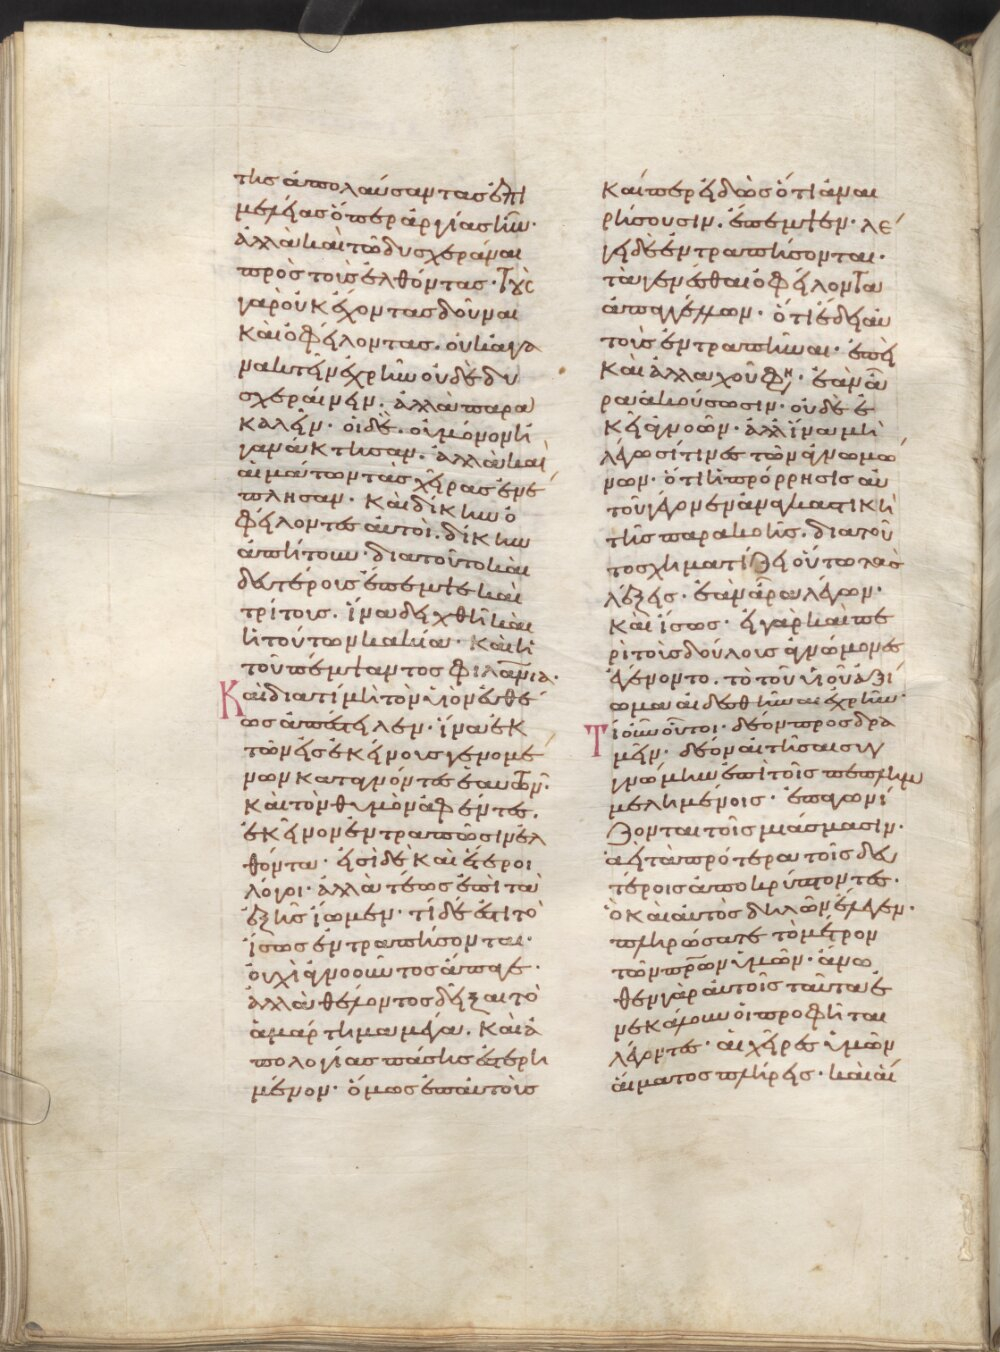 της ἀπολαύσαντας ἐπι
μελείας ὅπερ ἀργίας ἦν·
ἀλλὰ καὶ τῶ δυσχεράναι
πρὸς τοὺς ἐλθόντας· τοὺς
γὰρ οὐκ ἔχοντας δοῦναι
καὶ ὀφείλοντας. οὐκ ἀγα
νακτεῖν ἐχρῆν οὐδὲ δυ
σχεραίνειν. ἀλλὰ παρα
καλεῖν· οἱ δὲ. οὐ μόνον ἠ
γανάκτησαν. ἀλλὰ καὶ
αἱμάτων τὰς χεῖρας ἐνέ
πλησαν. καὶ δίκην ὀ
φείλοντες αὐτοὶ. δίκην
ἀπήτουν· διατοῦτο καὶ
δευτέρους ἔπεμψε καὶ
τρίτους. ἵνα δειχθῆ καὶ
ἡ τούτων κακία· καὶ ἡ
τοῦ πέμψαντος φιλανια.
Καὶ διατί μὴ τὸν υἱὸν εὐθέ
ως ἀπέστειλεν· ἵν' ἀ ἐκ
τῶν εἰς ἐκείνους γενομέ
νων καταγνόντες ἑαυτῶν·
καὶ τὸν θυμὸν ἀφέντες.
ἐκεῖνον ἐντραπῶσιν ἐλ
θόντα· εἰσὶ δὲ καὶ ἕτεροι
λόγοι· ἀλλὰ τέως ἐπὶ τὰ
ἑξῆς ἴωμεν· τί δέ ἐστι τὸ
ἴσως ἐντραπήσονται·
οὐχὶ ἀγνοοῦντος ἄπαγε·
ἀλλὰ θέλοντος δεῖξαι τὸ
ἁμάρτημα μέγα. καὶ ἀ
πολογίας πάσης ἐστερη
μένον· ὅμως ἐπ αὐτοὺς
καίπερ εἰδὼς ὅτι ἀναι
ρήσουσιν. ἔπεμψεν· λέ
γει δὲ ἐντραπήσονται·
τὸ γενέσθαι ὀφεῖλον τα
ἀπαγγέλλων· ὅτι ἔδει αὐ
τοὺς ἐντραπῆναι· ἐπεὶ
καὶ ἀλλαχοῦ φη· ἐὰν ἄ
ρα ἀκούσωσιν· οὐδὲ ἐ
κεῖ ἀγνοῶν· ἀλλ' ἵνα μὴ
λέγωσί τινες τῶν ἀγνωμό
νων· ὅτι ἡ πρόρρησις αὐ
τοῦ γέγονεν ἀναγκαστικὴ
τῆς παρακοῆς. διατοῦ
το σχηματίζει οὕτω τὰς
λέξεις· ἐὰν ἄρα λέγων·
καὶ ἴσως· εἰ γὰρ καὶ πε
ρὶ τοὺς δούλους ἀγνώμονες
ἐγένοντο. τὸ τοῦ υἱοῦ ἀξί
ωμα αἰδεσθῆναι ἐχρῆν·
Τί οὖν οὗτοι· δέον προσδρα
μεῖν· δέον αἰτῆσαι συγ
γνώμην ἐπὶ τοῖς πεπλημ
μελημένοις· ἐπαγωνί
ζονται τοῖς μιάσμασιν·
ἀεὶ τὰ πρότερα τοῖς δευ
τέροις ἀποκρύπτοντες.
ὃ καὶ αὐτὸς δηλῶν ἔλεγεν·
πληρώσατε τὸ μέτρον
τῶν πρων ὑμῶν· ἄνω
θεν γὰρ αὐτοῖς ταῦτα ἐ
νεκάλουν οἱ προφῆται
λέγοντες· αἱ χεῖρες ὑμῶν
αἵματος πλήρεις· καὶ αἵ